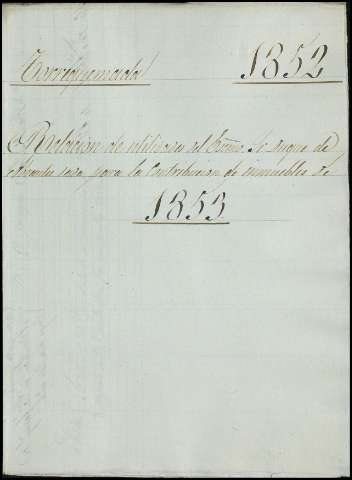 Torrequemada 1852
Relacion de utilidades del Escmo. Sr. Duque de
Abrantes dada para la Contribucion de inmuebles de
1853